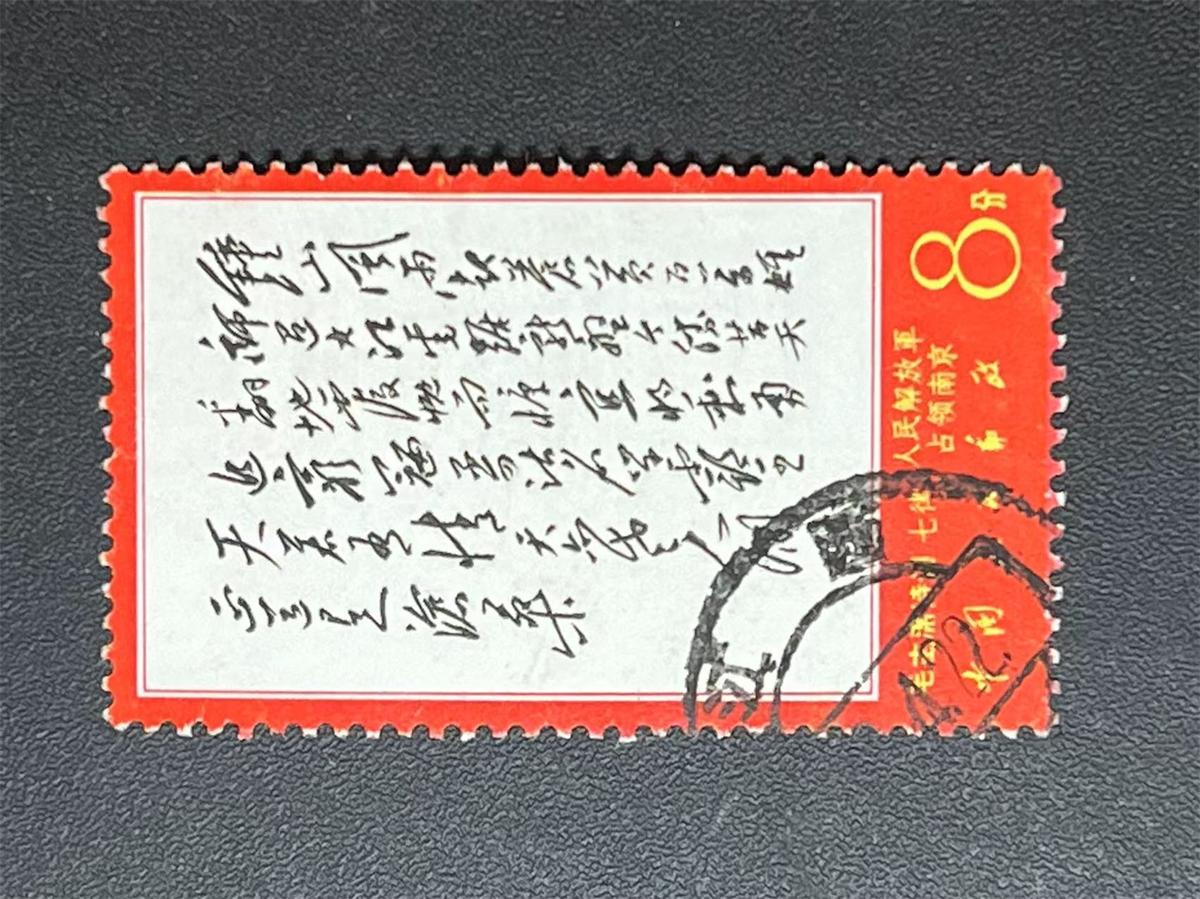 鐘山風雨起蒼黄百万雄
師過大江虎踞龍盤今勝昔天
翻地覆慨而慷宜將剩勇
追窮寇不可沽名學霸王
天若有情天亦老人间
正道是滄桑
8分
毛主席 七律 人民解放軍
占领南京
中国人民邮政
江
12